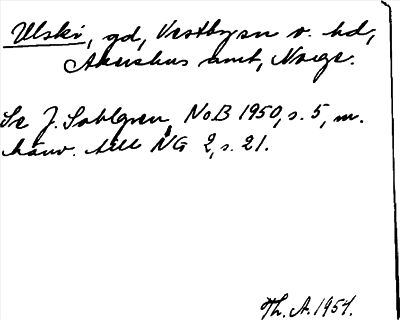 Ulski, gd, Vestbyen v. hd,
Akershus amt, Norge.
Se J. Sahlgren, NoB 1950, s. 5, m.
hänv. till NG 2, s. 21.
Th. A. 1954.